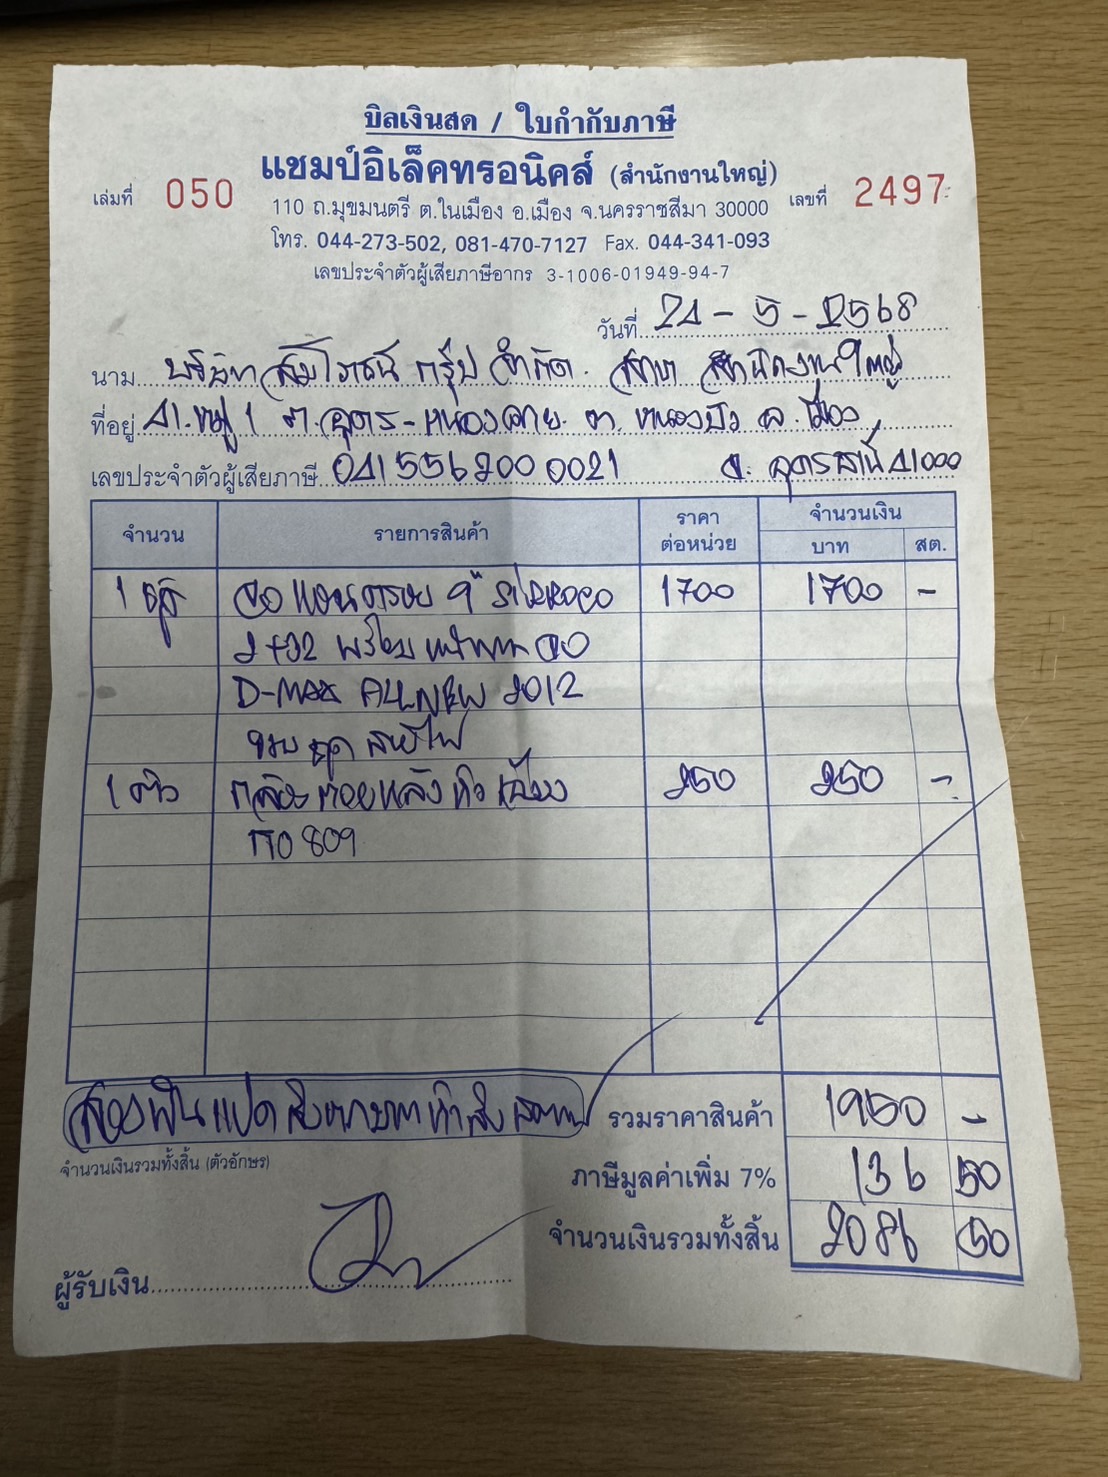 บิลเงินสด / ใบกำกับภาษี
แชมป์อิเล็คทรอนิคส์ (สำนักงานใหญ่)
เล่มที่ 050 เลขที่ 2497
110 ถ.มุขมนตรี ต.ในเมือง อ.เมือง จ.นครราชสีมา 30000
โทร. 044-273-502, 081-470-7127 Fax. 044-341-093
เลขประจำตัวผู้เสียภาษีอากร 3-1006-01949-94-7
วันที่ 24 - 5 - 2568
นาม บริษัท กรุ๊ป จำกัด สำนักงานใหญ่
ที่อยู่ 41 หมู่ 1 ถ.อุดร-หนองคาย ต. หนองบัว อ. เมือง
เลขประจำตัวผู้เสียภาษี 0415562000021 จ. อุดรธานี 41000
จำนวน รายการสินค้า ราคาต่อหน่วย จำนวนเงิน บาท สต.
1 ชุด จอ 9" 1700 1700 -
2+32 พร้อมหน้ากากจอ
D-MAX ALL NEW 2012
ชุด สายไฟ
1 ตัว กล้องถอยหลัง 250 250 -
809
สองพันแปดสิบหกบาทห้าสิบสตางค์ รวมราคาสินค้า 1950 -
จำนวนเงินรวมทั้งสิ้น (ตัวอักษร)
ภาษีมูลค่าเพิ่ม 7% 136 50
จำนวนเงินรวมทั้งสิ้น 2086 50
ผู้รับเงิน